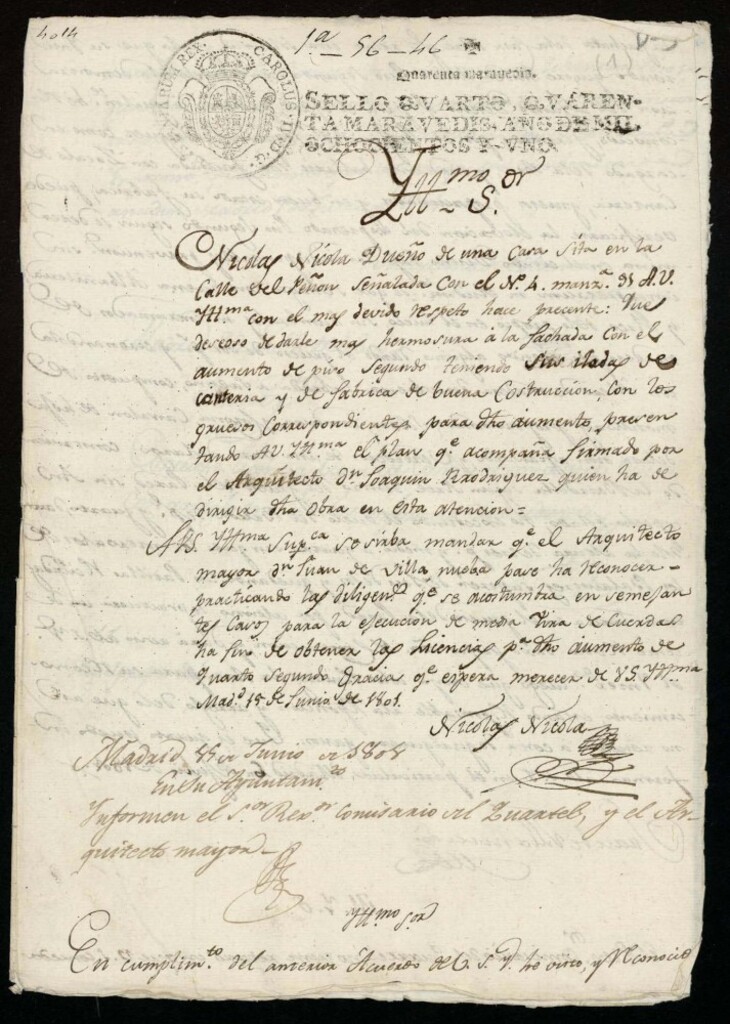 4014
1ª - 56 - 46
(1)
CAROLUS IIII D. G. HISPANIARUM REX
Quarenta maravedis.
SELLO QVARTO, QVAREN-
TA MARAVEDIS, AÑO DE MIL
OCHOCIENTOS Y VNO.
Yllmo Sor
Nicolas Nicola Dueño de una Casa sita en la
Calle del Peñon Señalada Con el Nº 4. manzª 31 A.V.
Yllma con el mas devido respeto hace presente: Que
deseoso de darle mas hermosura à la fachada Con el
aumento de piso Segundo teniendo sus iladas de
canteria y de fabrica de buena Costruccion, con los
gruesos Correspondientes para dho aumento, presen
tando AV. Yllma el plan qe acompaña firmado por
el Arquitecto dn Joaquin Rrodriguez quien ha de
dirigir dha Obra en esta atencion =
AVS. Yllma Supca se sirba mandar qe el Arquitecto
mayor dn Juan de Villa nueba pase ha Reconocer -
practicando las diligens qe se acostumbra en semejan
tes Casos para la execucion de media tira de Cuerdas
ha fin de obtener las Licencias pa dho aumento de
Quarto Segundo Gracia qe espera merecer de VS. Yllma
Madd 15 de Junio de 1801.
Nicolas Nicola
Madrid de Junio de
En su Ayuntamto
Informen el Sor Rexor Comisario del Quartel, y el Ar-
quitecto mayor -
Yllmo Sor
En cumplimto del anterior Acuerdo de V. S. Y. he visto, y Reconocido